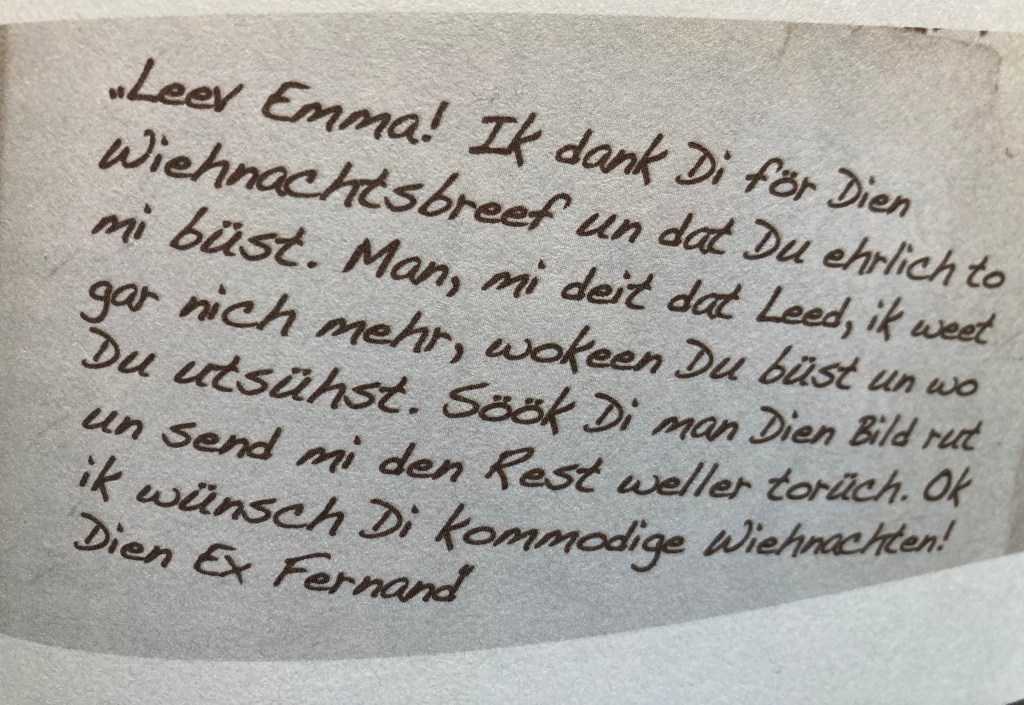 „Leev Emma! Ik dank Di för Dien
Wiehnachtsbreef un dat Du ehrlich to
mi büst. Man, mi deit dat Leed, ik weet
gar nich mehr, wokeen Du büst un wo
Du utsühst. Söök Di man Dien Bild rut
un send mi den Rest weller torüch. Ok
ik wünsch Di kommodige Wiehnachten!
Dien Ex Fernand"